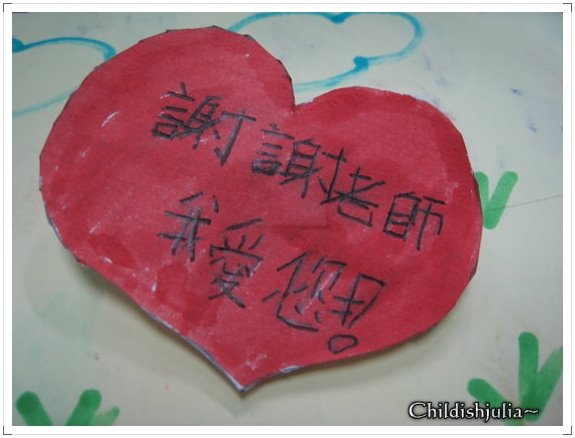 謝謝老師
我愛您!
Childishjulia~